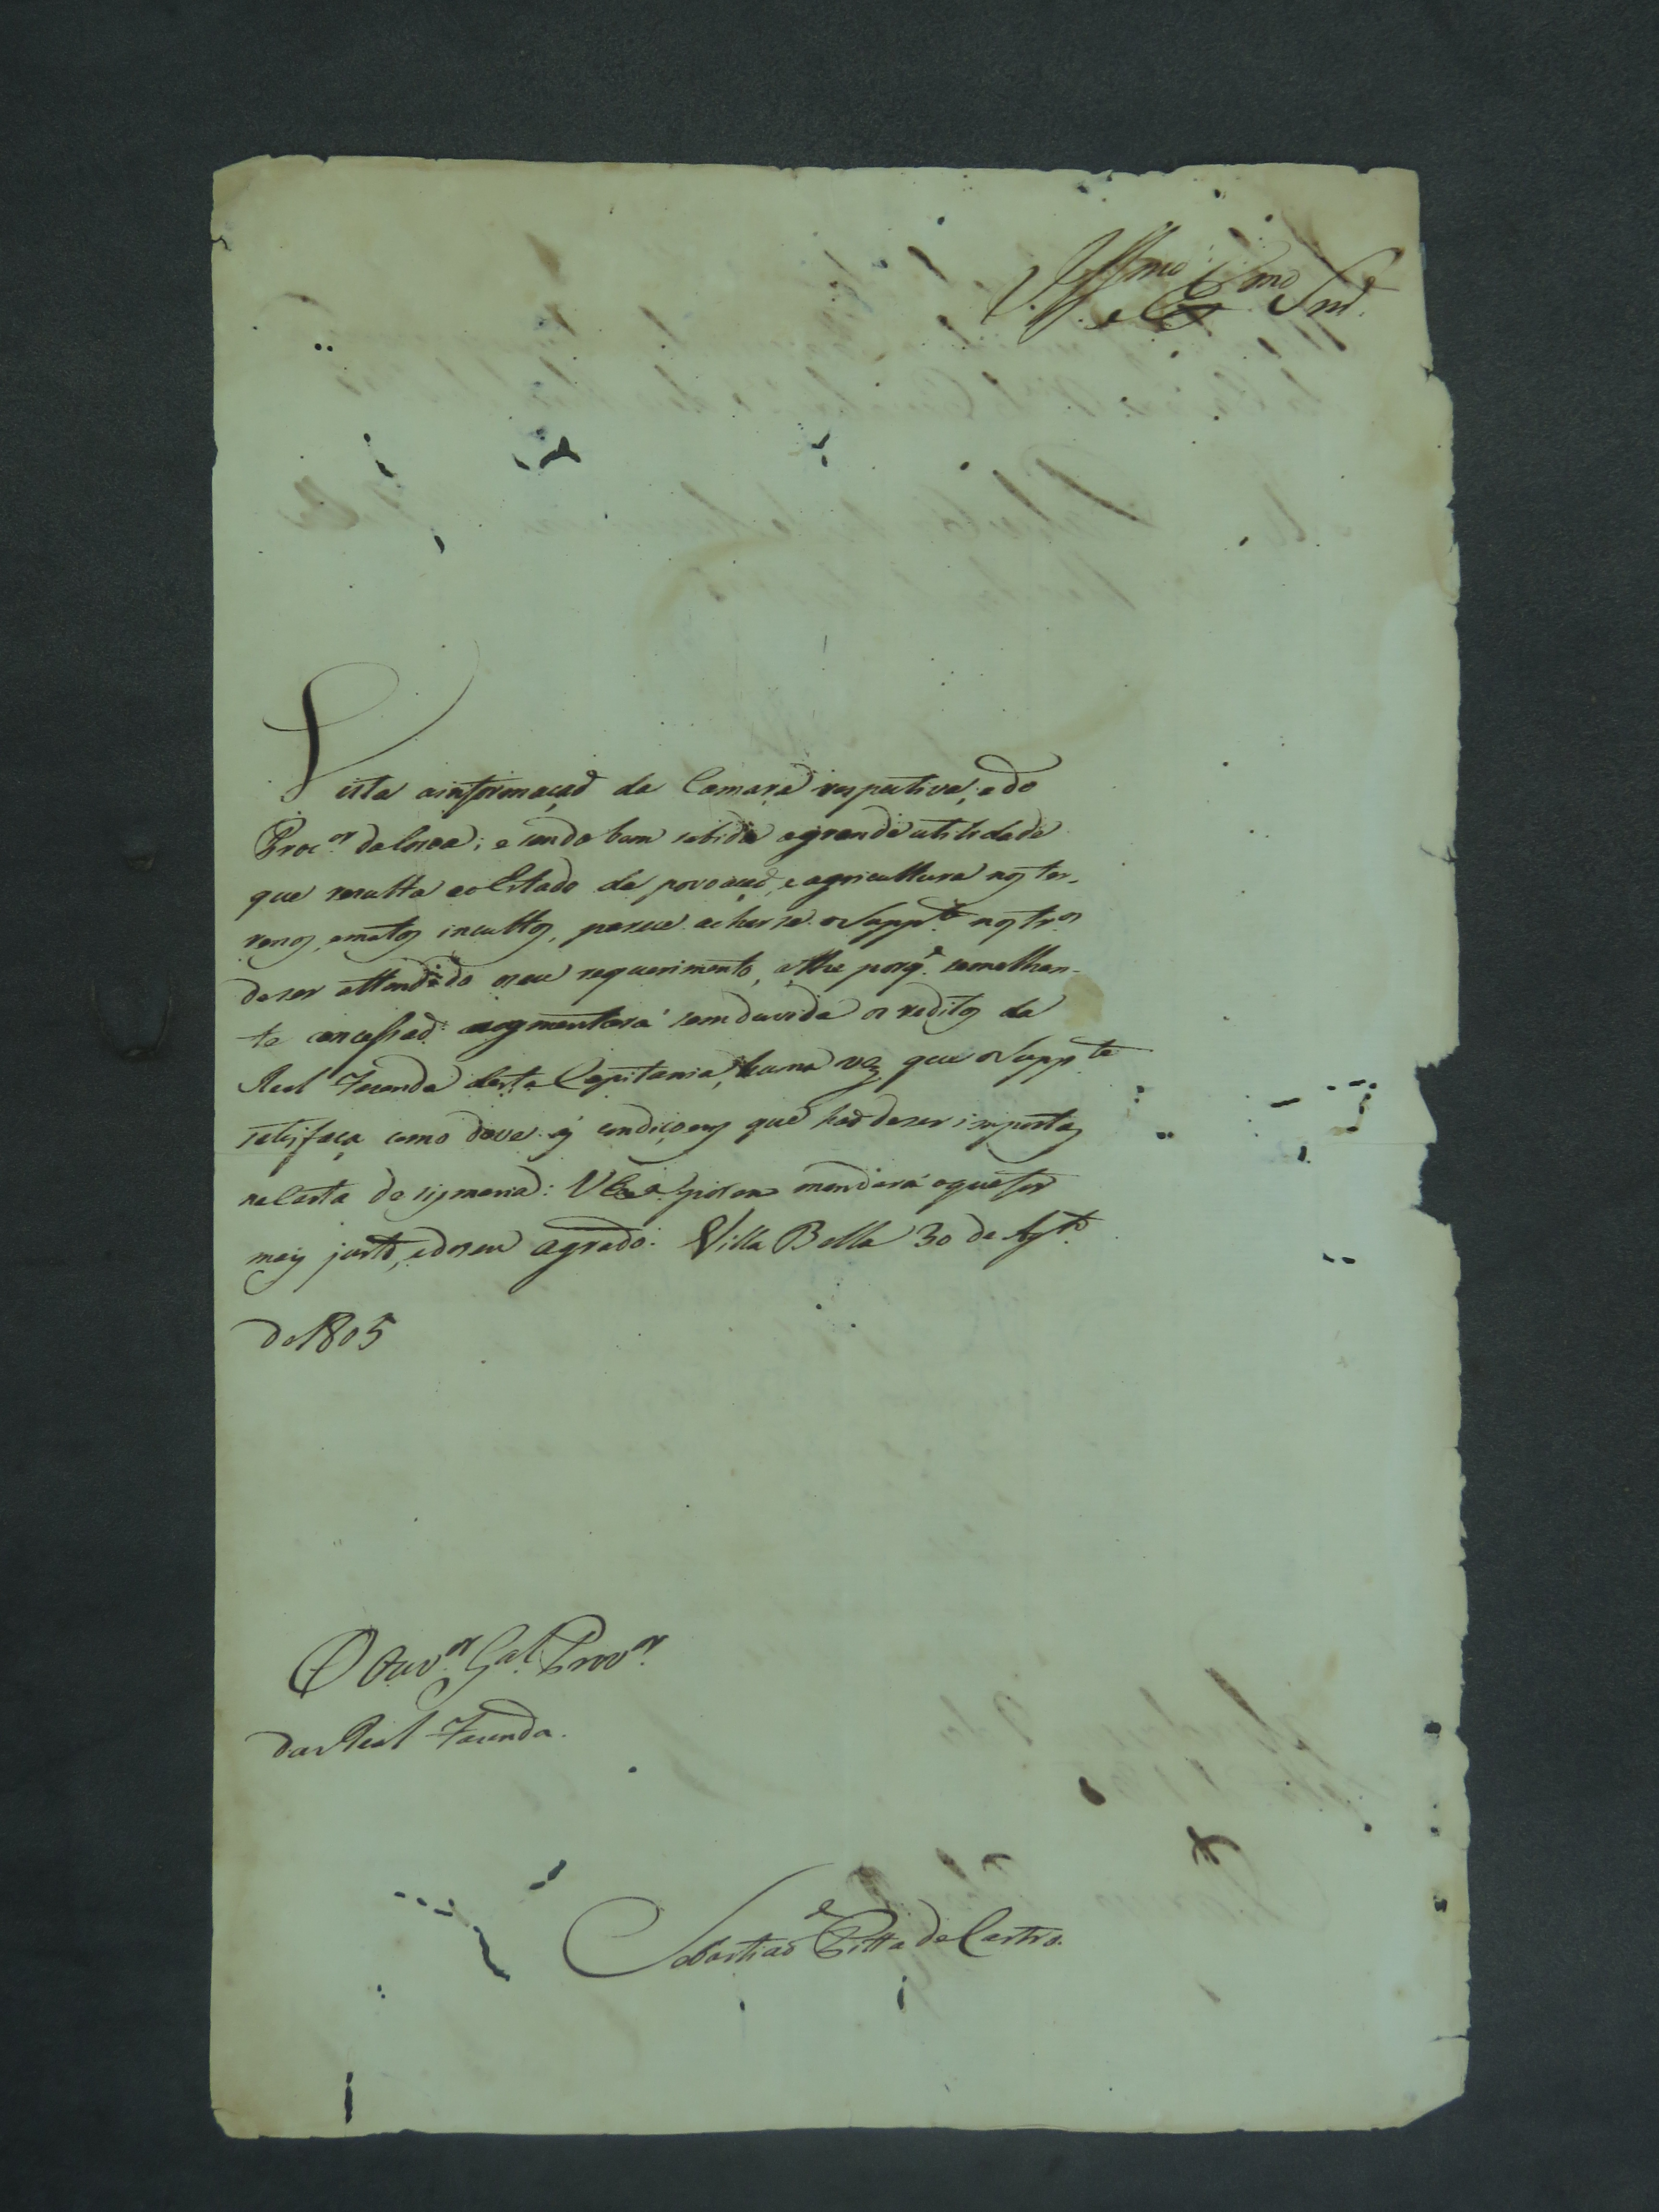 Illmo. e Exmo. Snr.
Vista a informaçaõ da Camara respectiva, e do
Proc.or da Coroa; e sendo bem sabida a grande utilidade
que resulta ao Estado da povoaçaõ, e agricultura nos ter-
renos, e matos incultos, parece acharse o Supp.te nos tr.os
de ser attendido o seu requerimento, athe porq.e semelhan-
te concessaõ augmentará sem duvida os reditos da
Real Fazenda desta Capitania, huma vez que o Supp.te
satisfaça como deve ás condiçoens que haõ de ser impostas
na Carta de sismaria: V Exa. porem mandará o que for
mais justo, e do seu agrado. Villa Bella 30 de Agt.o
de 1805
O Ouv.or G.al Prov.or
da Real Fazenda.
Sebastiaõ Pitta de Castro.